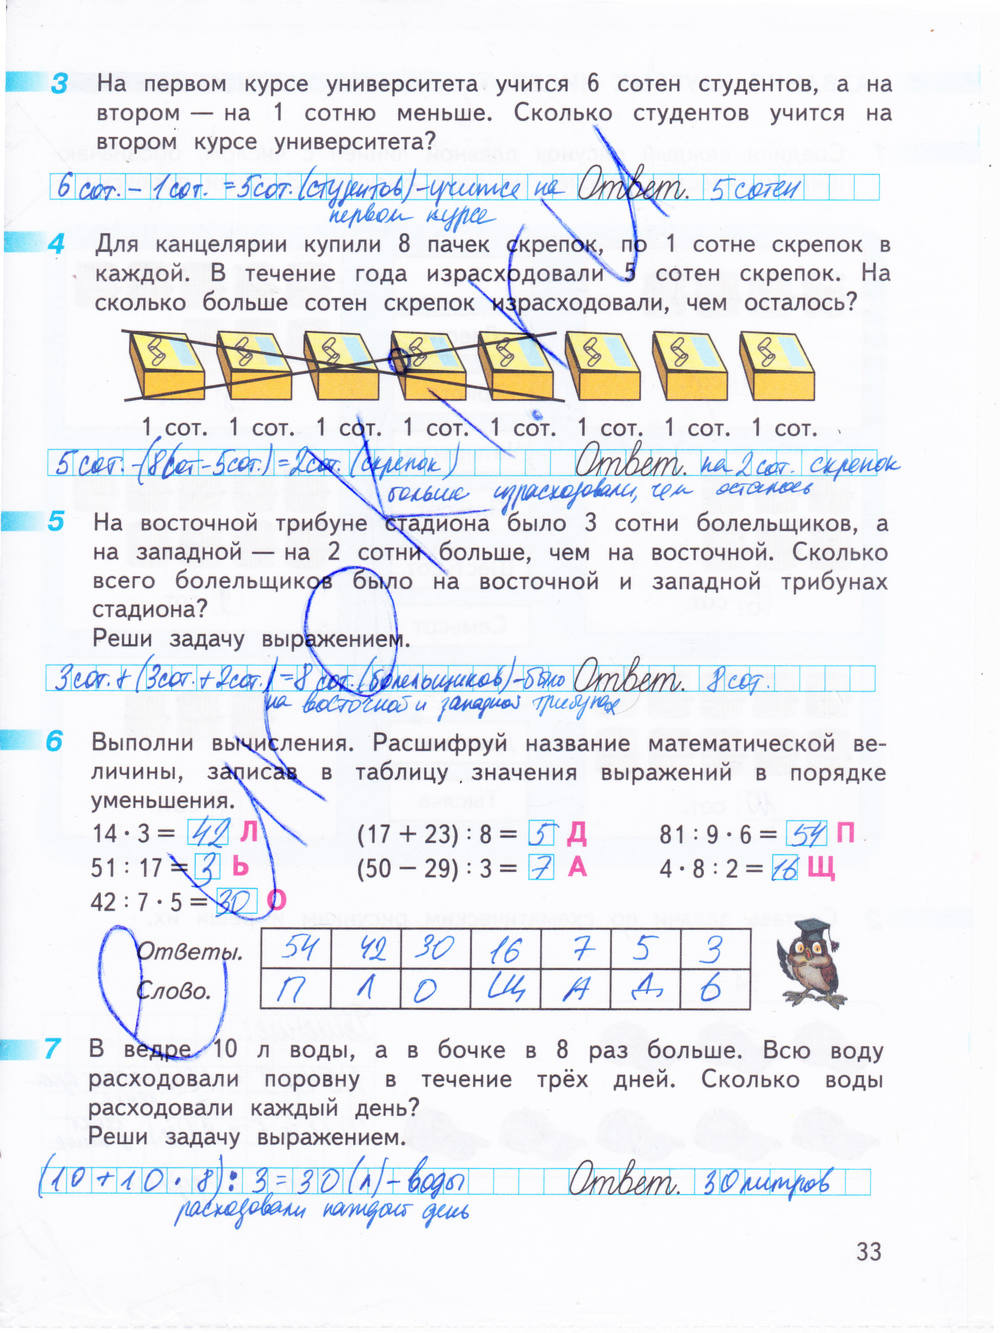 3 На первом курсе университета учится 6 сотен студентов, а на
втором — на 1 сотню меньше. Сколько студентов учится на
втором курсе университета?
6 сот. – 1 сот. = 5 сот. (студентов) – учится на Ответ. 5 сотен
первом курсе
4 Для канцелярии купили 8 пачек скрепок, по 1 сотне скрепок в
каждой. В течение года израсходовали 5 сотен скрепок. На
сколько больше сотен скрепок израсходовали, чем осталось?
1 сот. 1 сот. 1 сот. 1 сот. 1 сот. 1 сот. 1 сот. 1 сот.
5 сот. – (8 сот – 5 сот.) = 2 сот. (скрепок) Ответ. на 2 сот. скрепок
больше израсходовали, чем осталось
5 На восточной трибуне стадиона было 3 сотни болельщиков, а
на западной — на 2 сотни больше, чем на восточной. Сколько
всего болельщиков было на восточной и западной трибунах
стадиона?
Реши задачу выражением.
3 сот. + (3 сот. + 2 сот.) = 8 сот. (болельщиков) – было Ответ. 8 сот.
на восточной и западной трибунах
6 Выполни вычисления. Расшифруй название математической ве-
личины, записав в таблицу значения выражений в порядке
уменьшения.
14 · 3 = 42 Л (17 + 23) : 8 = 5 Д 81 : 9 · 6 = 54 П
51 : 17 = 3 Ь (50 – 29) : 3 = 7 А 4 · 8 : 2 = 16 Щ
42 : 7 · 5 = 30 О
Ответы. 54 42 30 16 7 5 3
Слово. П Л О Щ А Д Ь
7 В ведре 10 л воды, а в бочке в 8 раз больше. Всю воду
расходовали поровну в течение трёх дней. Сколько воды
расходовали каждый день?
Реши задачу выражением.
(10 + 10 · 8) : 3 = 30 (л) – воды Ответ. 30 литров
расходовали каждый день
33